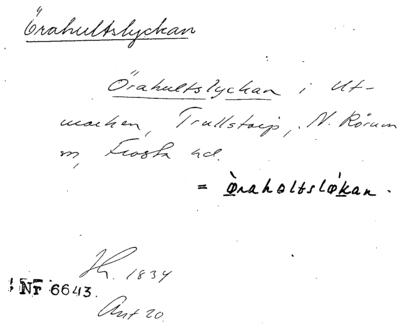 Örahultslyckan
Örahultslyckan i Ut-
marken, Trullstorp, N. Rörum
sn, Frosta hd.
= òraholtslókan.
Sk. 1834
Nr 6643.
Ant 20.